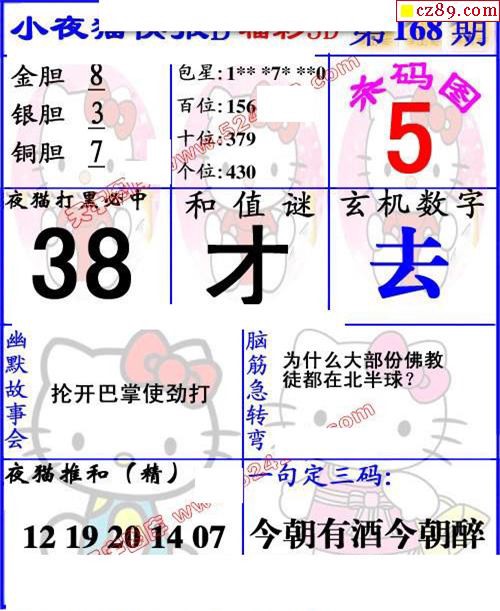 cz89.com
小夜猫快报D 福彩3D 第168期
金胆 8
银胆 3
铜胆 7
包星: 1** *7* **0
百位: 156
十位: 379
个位: 430
杀码图
5
夜猫打黑必中
38
和值谜
才
玄机数字
去
幽默故事会
抡开巴掌使劲打
脑筋急转弯
为什么大部份佛教
徒都在北半球?
夜猫推和(精)
12 19 20 14 07
一句定三码:
今朝有酒今朝醉